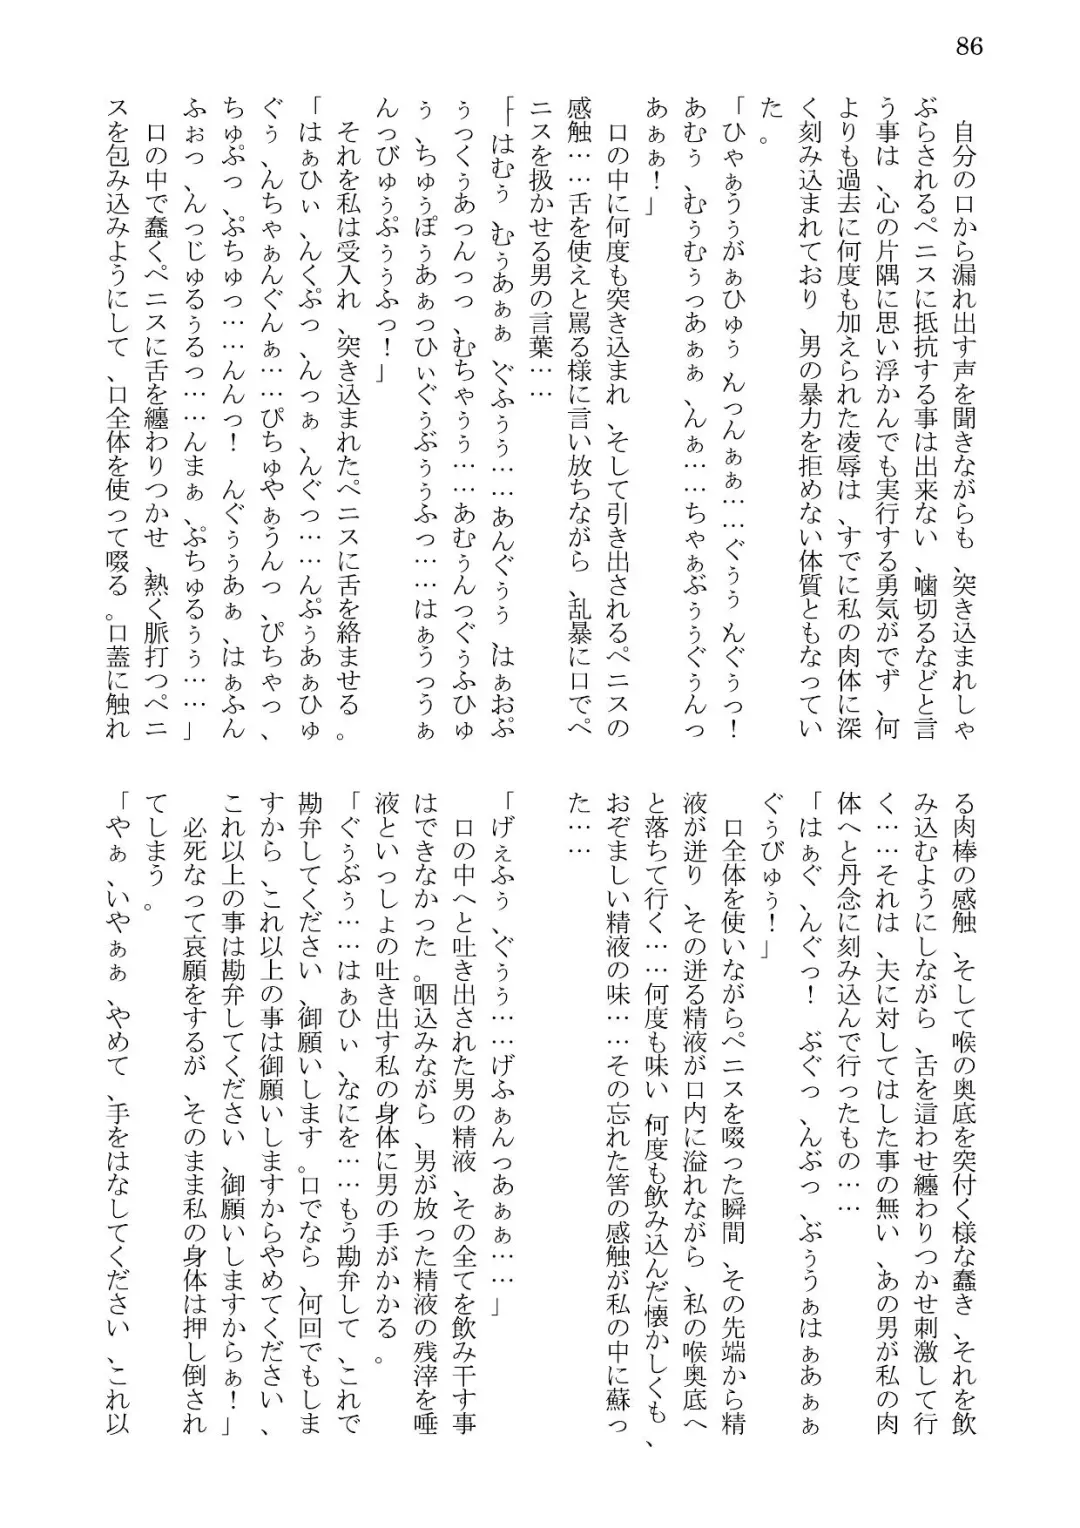 86
　自分の口から漏れ出す声を聞きながらも、突き込まれしゃ
ぶらされるペニスに抵抗する事は出来ない、噛切るなどと言
う事は、心の片隅に思い浮かんでも実行する勇気がでず、何
よりも過去に何度も加えられた凌辱は、すでに私の肉体に深
く刻み込まれており、男の暴力を拒めない体質ともなってい
た。
「ひゃぁうぅがぁひゅぅ、んっんぁぁ……ぐぅぅ、んぐぅっ！
あむぅ、むぅむぅっあぁぁ、んぁ……ちゃぁぶぅぅぐぅんっ
あぁぁ！」
　口の中に何度も突き込まれ、そして引き出されるペニスの
感触……舌を使えと罵る様に言い放ちながら、乱暴に口でペ
ニスを扱かせる男の言葉……
「――はむぅ、むぅあぁぁ、ぐふぅぅ……あんぐぅぅ、はぁおぷ
ぅっくぅあっんっっ、むちゃぅぅ……あむぅんっぐぅふひゅ
ぅ、ちゅぅぽぅあぁっひぃぐぅぶぅぅふっ……はぁうつうぁ
んっびゅぅぷぅぅふっ！」
　それを私は受入れ、突き込まれたペニスに舌を絡ませる。
「はぁひぃ、んくぷっ、んっぁ、んぐっ……んぷぅあぁひゅ
ぐぅ、んちゃぁんぐんぁ……ぴちゅやぁうんっ、ぴちゃっ、
ちゅぷっ、ぷちゅっ……んんっ！　んぐぅぅあぁ、はぁふん
ふぉっ、んっじゅるぅるっ……んまぁ、ぷちゅるぅぅ……」
　口の中で蠢くペニスに舌を纏わりつかせ、熱く脈打つペニ
スを包み込みようにして、口全体を使って啜る。口蓋に触れ
る肉棒の感触、そして喉の奥底を突付く様な蠢き、それを飲
み込むようにしながら、舌を這わせ纏わりつかせ刺激して行
く……それは、夫に対してはした事の無い、あの男が私の肉
体へと丹念に刻み込んで行ったもの……
「はぁぐ、んぐっ！　ぶぐっ、んぶっ、ぶぅうぁはぁあぁぁ
ぐぅびゅぅ！」
　口全体を使いながらペニスを啜った瞬間、その先端から精
液が迸り、その迸る精液が口内に溢れながら、私の喉奥底へ
と落ちて行く……何度も味い、何度も飲み込んだ懐かしくも、
おぞましい精液の味……その忘れた筈の感触が私の中に蘇っ
た……
「げぇふぅ、ぐぅぅ……げふぁんっあぁぁ……」
　口の中へと吐き出された男の精液、その全てを飲み干す事
はできなかった。咽込みながら、男が放った精液の残滓を唾
液といっしょの吐き出す私の身体に男の手がかかる。
「ぐぅぶぅ……はぁひぃ、なにを……もう勘弁して、これで
勘弁してください、御願いします。口でなら、何回でもしま
すから、これ以上の事は御願いしますからやめてください、
これ以上の事は勘弁してください、御願いしますからぁ！」
　必死なって哀願をするが、そのまま私の身体は押し倒され
てしまう。
「やぁ、いやぁぁ、やめて、手をはなしてください、これ以